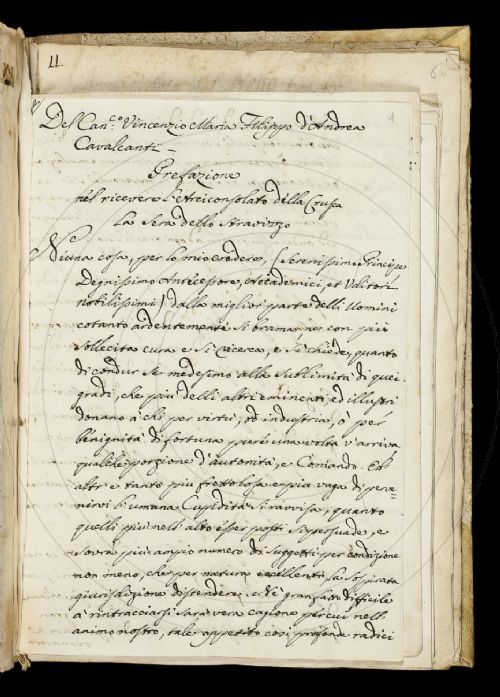 LL.
Del Can.co Vincenzio Maria Filippo d'Andrea
Cavalcanti
Prefazione
nel ricevere l'Arciconsolato della Crusca
la Sera dello Stravizzo
Niuna cosa, per lo mio credere, (Serenissimo Principe
Degnissimo Antecessore, Accademici, et Uditori
nobilissimi) dalla miglior parte delli Uomini
cotanto ardentemente si brama, ne con più
sollecita cura e si ricerca, e si chiede, quanto
di condur se medesimo alla sublimità di quei
gradi, che più delli altri eminenti, ed illustri
donano à chi per virtù, ed industria, ò per
benignità di fortuna pure una volta v'arriva
qualche porzione d'autorità, e Comando. Et
altr e tanto più frettolosa, e più vaga di perve=
nirvi l'umana Cupidità si ravvisa, quanto
quelli più nell'alto esser posti si persuade, e
sovra più ampio numero di Suggetti per condizione
non meno, che per natura eccellenti la sospirata
giurisdizione distendere. Nè gran fatto difficile
à rintracciarsi sarà vera cagione per cui nell'
animo nostro, tale appetito così profonde radici